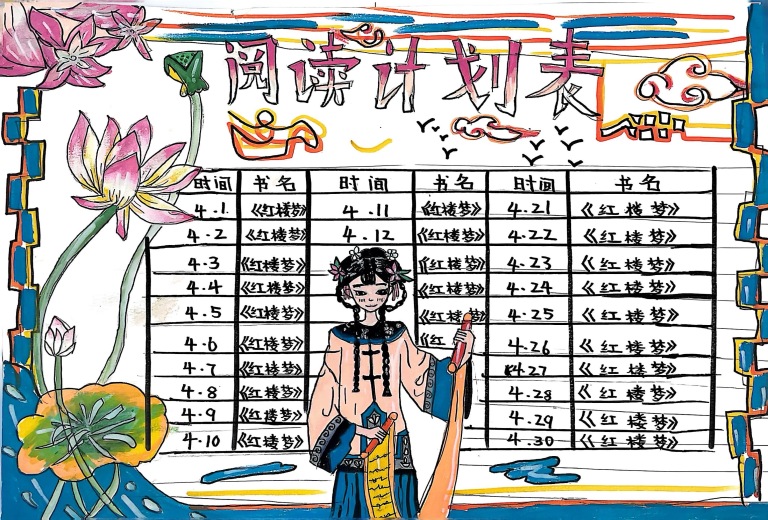 阅读计划表
时间 书名 时间 书名 时间 书名
4.1 《红楼梦》 4.11 《红楼梦》 4.21 《红楼梦》
4.2 《红楼梦》 4.12 《红楼梦》 4.22 《红楼梦》
4.3 《红楼梦》 《红楼梦》 4.23 《红楼梦》
4.4 《红楼梦》 《红楼梦》 4.24 《红楼梦》
4.5 《红楼梦》 《红楼梦》 4.25 《红楼梦》
4.6 《红楼梦》 《红 4.26 《红楼梦》
4.7 《红楼梦》 4.27 《红楼梦》
4.8 《红楼梦》 4.28 《红楼梦》
4.9 《红楼梦》 4.29 《红楼梦》
4.10 《红楼梦》 4.30 《红楼梦》